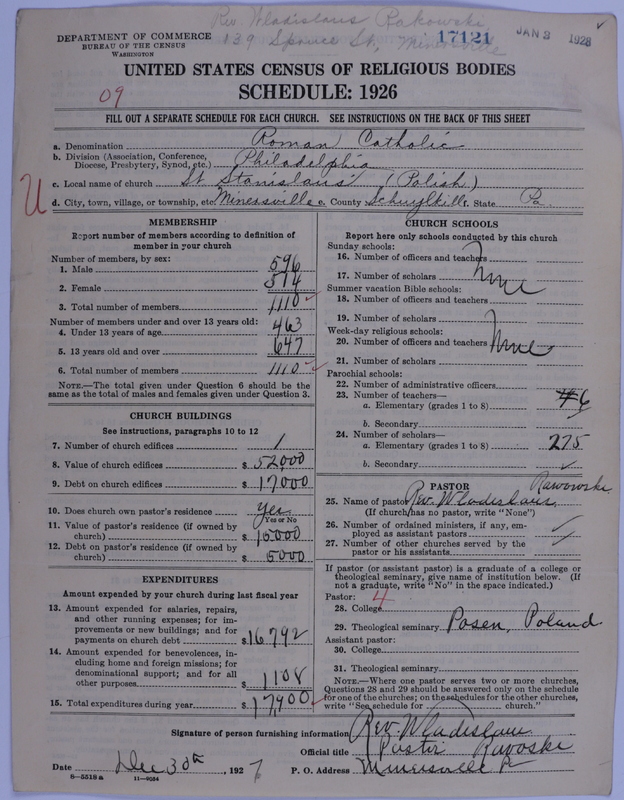 Rev. Wladislaus Rakowski
139 Spruce St., Minersville
17121
JAN 3 1928
DEPARTMENT OF COMMERCE
BUREAU OF THE CENSUS
WASHINGTON
UNITED STATES CENSUS OF RELIGIOUS BODIES
SCHEDULE: 1926
09
FILL OUT A SEPARATE SCHEDULE FOR EACH CHURCH. SEE INSTRUCTIONS ON THE BACK OF THIS SHEET
a. Denomination Roman Catholic
b. Division (Association, Conference, Diocese, Presbytery, Synod, etc.) Philadelphia
c. Local name of church St. Stanislaus' (Polish)
U
d. City, town, village, or township, etc. Minersville e. County Schuylkill f. State Pa.
MEMBERSHIP
Report number of members according to definition of member in your church
Number of members, by sex:
1. Male 596
2. Female 514
3. Total number of members 1110
Number of members under and over 13 years old:
4. Under 13 years of age 463
5. 13 years old and over 647
6. Total number of members 1110
NOTE.—The total given under Question 6 should be the same as the total of males and females given under Question 3.
CHURCH BUILDINGS
See instructions, paragraphs 10 to 12
7. Number of church edifices 1
8. Value of church edifices $ 52,000
9. Debt on church edifices $ 17000
10. Does church own pastor's residence? yes
Yes or No
11. Value of pastor's residence (if owned by church) $ 10000
12. Debt on pastor's residence (if owned by church) $ 5000
EXPENDITURES
Amount expended by your church during last fiscal year
13. Amount expended for salaries, repairs, and other running expenses; for improvements or new buildings; and for payments on church debt $ 16792
14. Amount expended for benevolences, including home and foreign missions; for denominational support; and for all other purposes $ 1108
15. Total expenditures during year $ 17,900
CHURCH SCHOOLS
Report here only schools conducted by this church
Sunday schools:
16. Number of officers and teachers
17. Number of scholars
none
Summer vacation Bible schools:
18. Number of officers and teachers
19. Number of scholars
Week-day religious schools:
20. Number of officers and teachers none
21. Number of scholars
Parochial schools:
22. Number of administrative officers
23. Number of teachers—
a. Elementary (grades 1 to 8) 6
b. Secondary
24. Number of scholars—
a. Elementary (grades 1 to 8) 275
b. Secondary
PASTOR
25. Name of pastor Rev. Wladislaus Rawowski
(If church has no pastor, write "None")
26. Number of ordained ministers, if any, employed as assistant pastors
27. Number of other churches served by the pastor or his assistants
If pastor (or assistant pastor) is a graduate of a college or theological seminary, give name of institution below. (If not a graduate, write "No" in the space indicated.)
Pastor: 4
28. College
29. Theological seminary Posen, Poland
Assistant pastor:
30. College
31. Theological seminary
NOTE.—Where one pastor serves two or more churches, Questions 28 and 29 should be answered only on the schedule for one of the churches; on the schedules for the other churches, write "See schedule for church."
Signature of person furnishing information Rev. Wladislaus
Official title Pastor Rawoski
Date Dec 30th, 1927
P. O. Address Minersville Pa
8—5518 a 11—9054